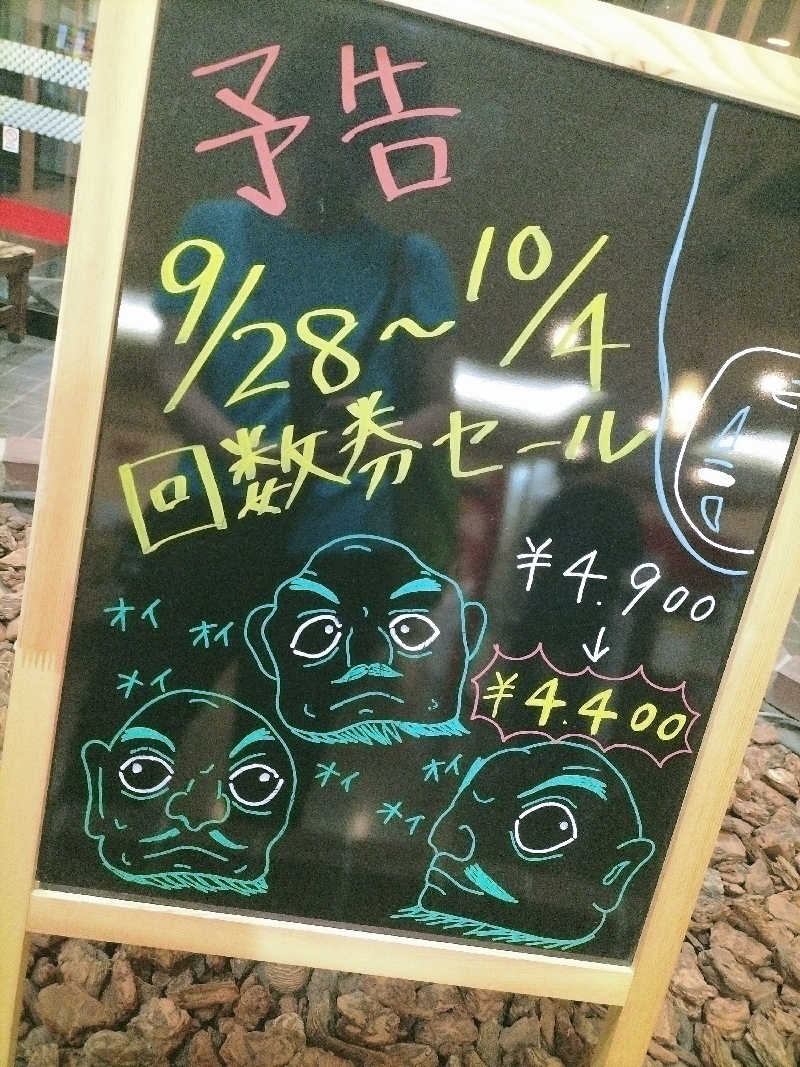 予告
9/28〜10/4
回数券セール
¥4.900
↓
¥4.400
オイ
オイ
オイ
オイ
オイ
オイ